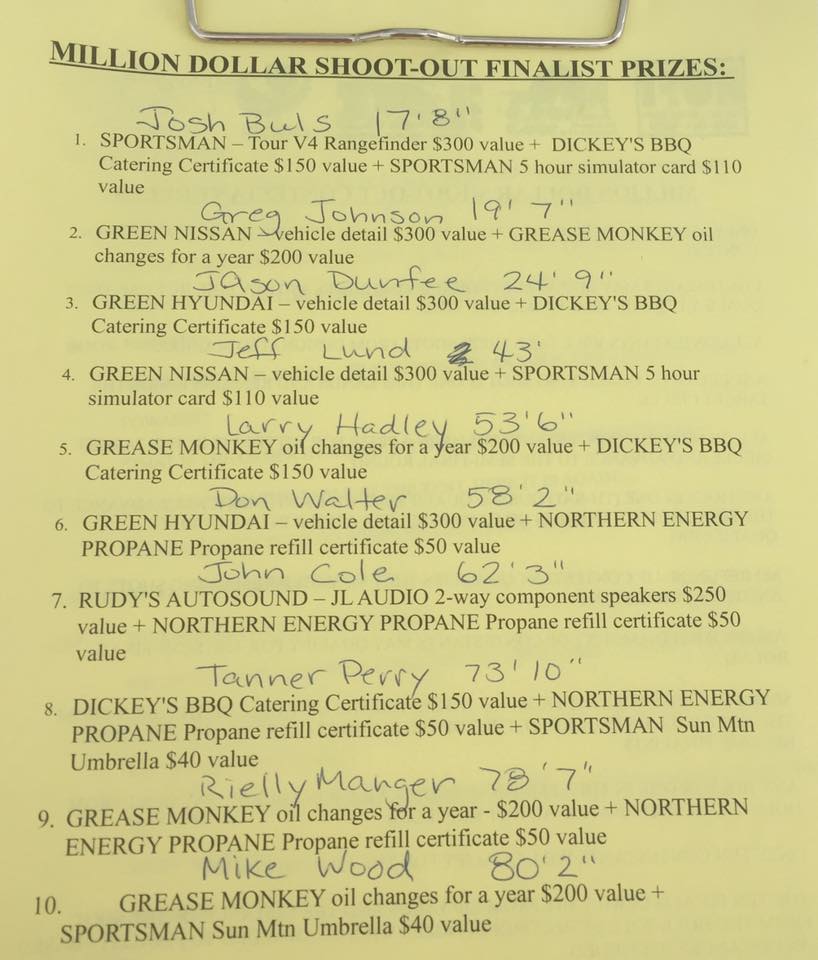 MILLION DOLLAR SHOOT-OUT FINALIST PRIZES:
Josh Buls 17'8"
1. SPORTSMAN – Tour V4 Rangefinder $300 value + DICKEY'S BBQ
Catering Certificate $150 value + SPORTSMAN 5 hour simulator card $110
value
Greg Johnson 19' 7"
2. GREEN NISSAN – vehicle detail $300 value + GREASE MONKEY oil
changes for a year $200 value
Jason Dunfee 24' 9"
3. GREEN HYUNDAI – vehicle detail $300 value + DICKEY'S BBQ
Catering Certificate $150 value
Jeff Lund 43'
4. GREEN NISSAN – vehicle detail $300 value + SPORTSMAN 5 hour
simulator card $110 value
Larry Hadley 53'6"
5. GREASE MONKEY oil changes for a year $200 value + DICKEY'S BBQ
Catering Certificate $150 value
Don Walter 58'2"
6. GREEN HYUNDAI – vehicle detail $300 value + NORTHERN ENERGY
PROPANE Propane refill certificate $50 value
John Cole 62'3"
7. RUDY'S AUTOSOUND – JL AUDIO 2-way component speakers $250
value + NORTHERN ENERGY PROPANE Propane refill certificate $50
value
Tanner Perry 73'10"
8. DICKEY'S BBQ Catering Certificate $150 value + NORTHERN ENERGY
PROPANE Propane refill certificate $50 value + SPORTSMAN Sun Mtn
Umbrella $40 value
Rielly Manger 78'7"
9. GREASE MONKEY oil changes for a year - $200 value + NORTHERN
ENERGY PROPANE Propane refill certificate $50 value
Mike Wood 80'2"
10. GREASE MONKEY oil changes for a year $200 value +
SPORTSMAN Sun Mtn Umbrella $40 value